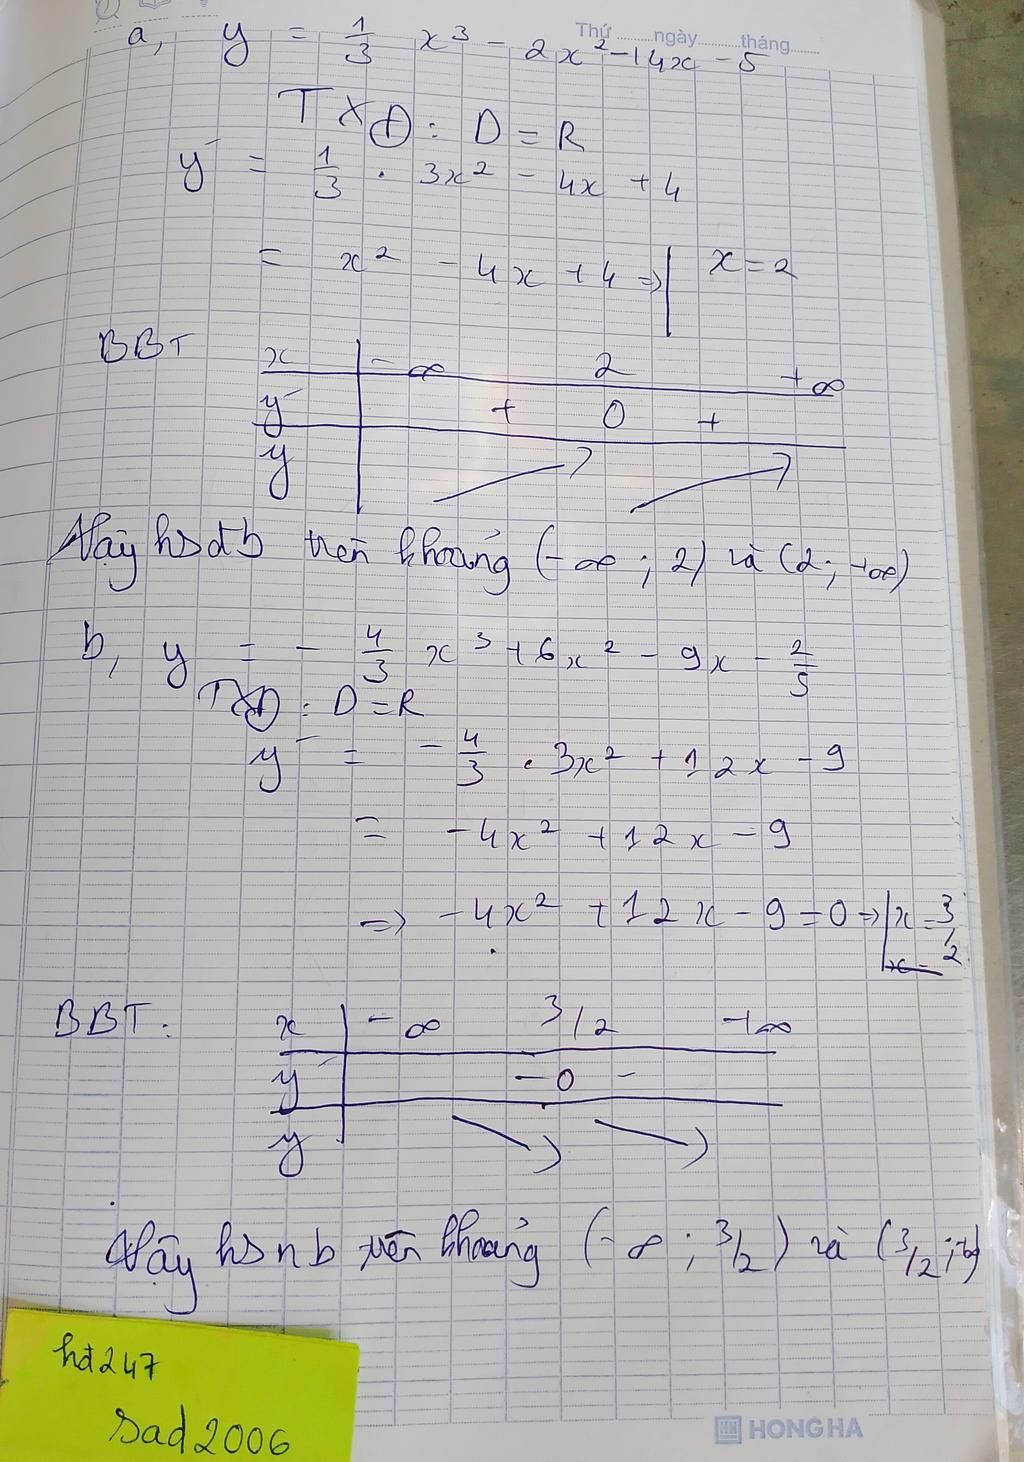 Thứ ........ngày ........tháng........
a, y = 1/3 x³ - 2x² - 14x - 5
TXĐ : D = R
y' = 1/3 . 3x² - 4x + 4
= x² - 4x + 4 => | x = 2
BBT
x | -∞ 2 +∞
y' | + 0 +
y | ↗ ↗
Vậy hsđb trên khoảng (-∞ ; 2) và (2; +∞)
b, y = - 4/3 x³ + 6x² - 9x - 2/5
TXĐ : D = R
y' = - 4/3 . 3x² + 12x - 9
= -4x² + 12x - 9
=> -4x² + 12x - 9 = 0 => | x = 3/2
BBT :
x | -∞ 3/2 +∞
y' | - 0 -
y | ↘ ↘
Vậy hs nb trên khoảng (-∞ ; 3/2) và (3/2 ; +∞)
hđ247
sad2006
HONG HA